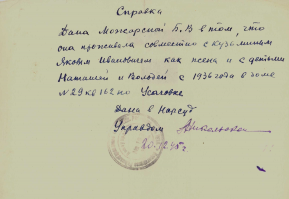 Справка
Дана Можарской Б.В в том, что
она проживала совместно с Кузьминым
Яковом Ивановичем как жена и с детьми
Наташей и Володей с 1936 года в доме
№ 29 кв 162 по Усачевке
Дана в Нарсуд
Управдом